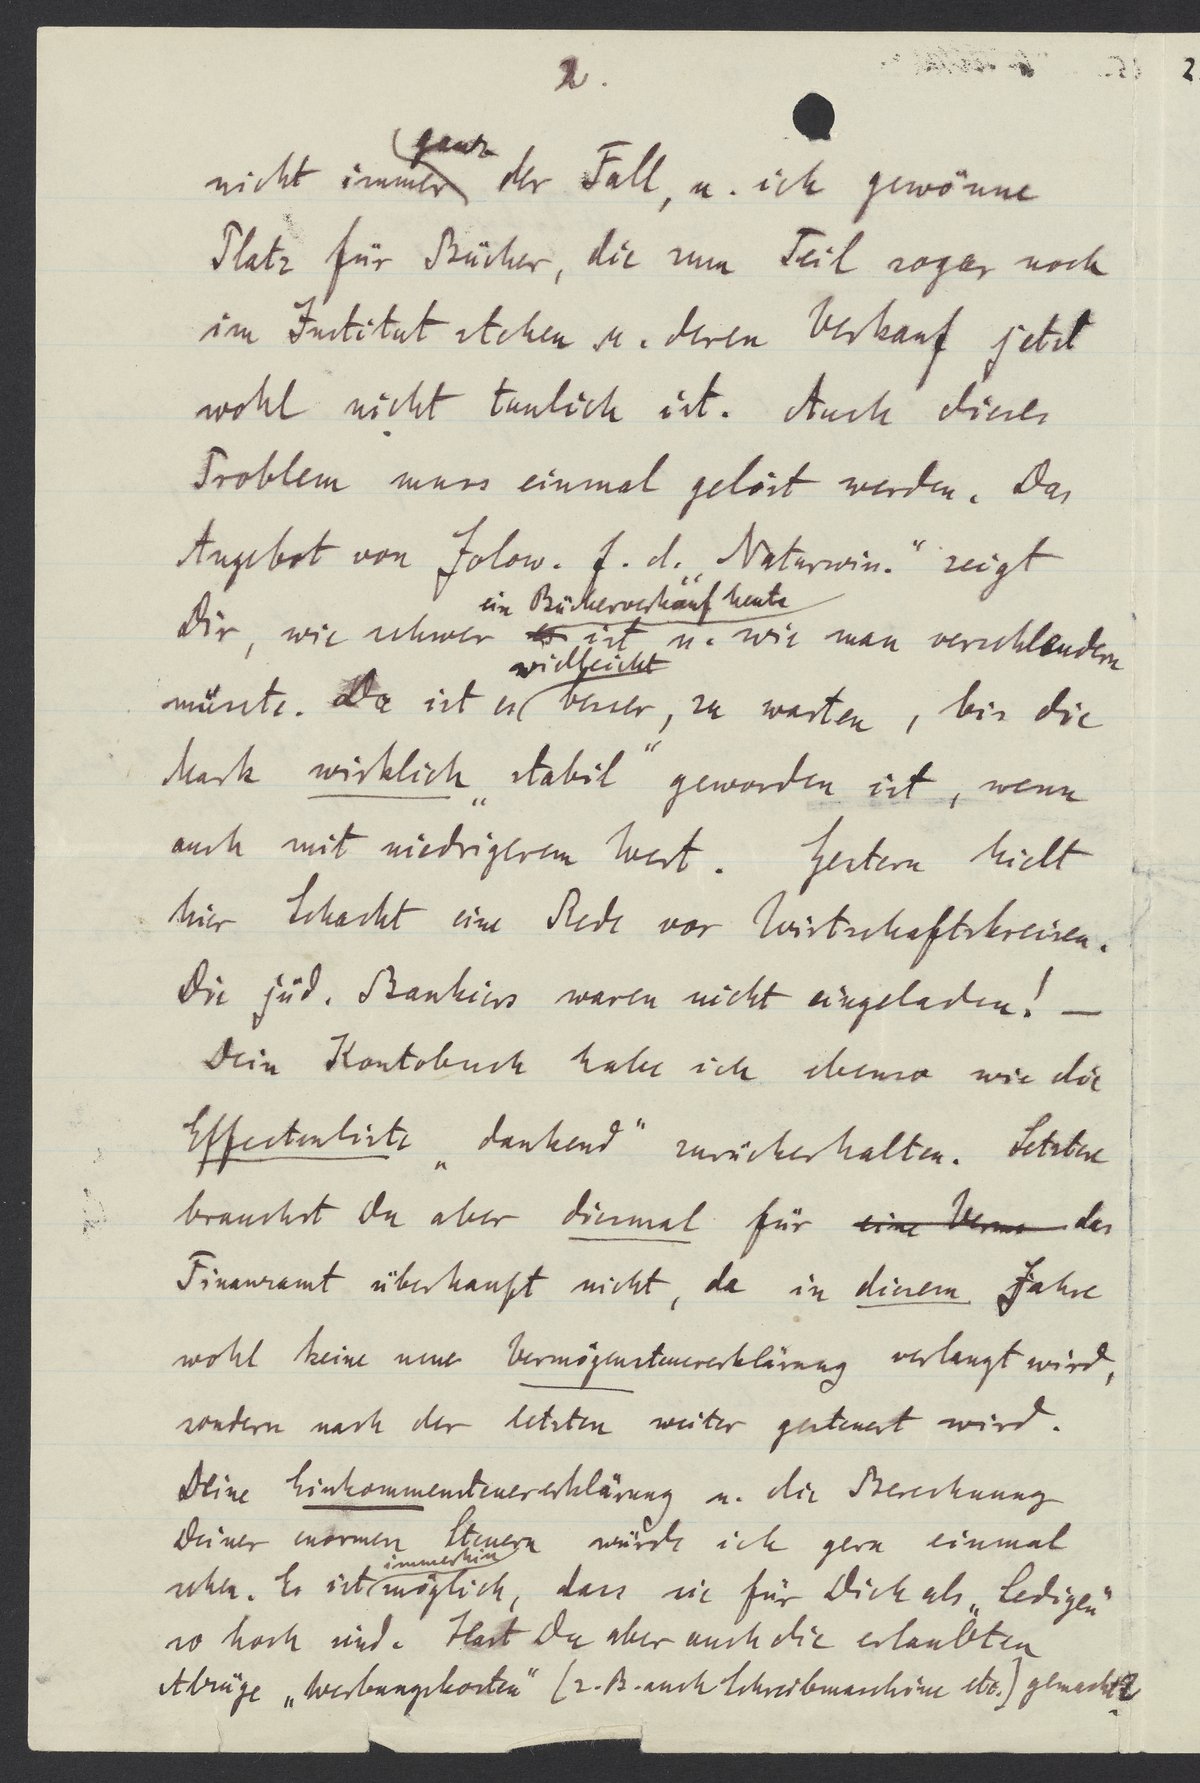 2.
nicht immer ganz der Fall, u. ich gewönne
Platz für Bücher, die zum Teil sogar noch
im Institut stehen u. deren Verkauf jetzt
wohl nicht tunlich ist. Auch dieses
Problem muss einmal gelöst werden. Das
Angebot von Jolow. f. d. „Naturwiss.“ zeigt
Dir, wie schwer es ein Bücherverkauf heute ist u. wie man verschleudern
müsste. Da ist es vielleicht besser, zu warten, bis die
Mark wirklich „stabil“ geworden ist, wenn
auch mit niedrigerem Wert. Gestern hielt
hier Schacht eine Rede vor Wirtschaftskreisen.
Die jüd. Bankiers waren nicht eingeladen! —
Dein Kontobuch habe ich ebenso wie die
Effectenliste „dankend“ zurückerhalten. Letztere
brauchst Du aber diesmal für eine Verm das
Finanzamt überhaupt nicht, da in diesem Jahre
wohl keine neue Vermögensteuererklärung verlangt wird,
sondern nach der letzten weiter gesteuert wird.
Deine Einkommensteuererklärung u. die Berechnung
Deiner enormen Steuern würde ich gern einmal
sehen. Es ist immerhin möglich, dass sie für Dich als „Ledigen“
so hoch sind. Hast Du aber auch die erlaubten
Abzüge „Werbungskosten“ (z. B. auch Schreibmaschine etc.) gemacht?
2